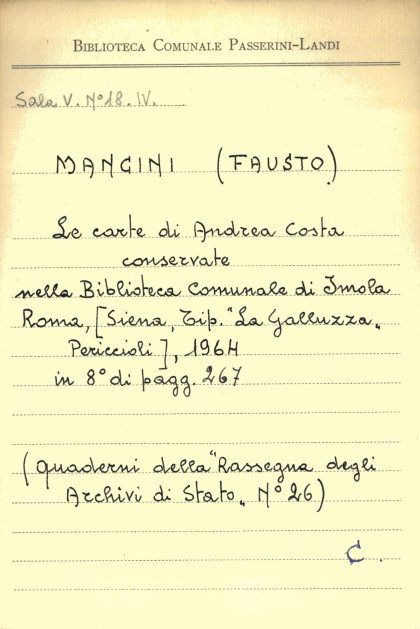 Biblioteca Comunale Passerini-Landi
Sala V. N° 18. IV.
MANCINI (FAUSTO)
Le carte di Andrea Costa
conservate
nella Biblioteca Comunale di Imola
Roma, [Siena, Tip. "La Galluzza„
Periccioli], 1964
in 8° di pagg. 267
(Quaderni della "Rassegna degli
Archivi di Stato„ N° 26)
C.